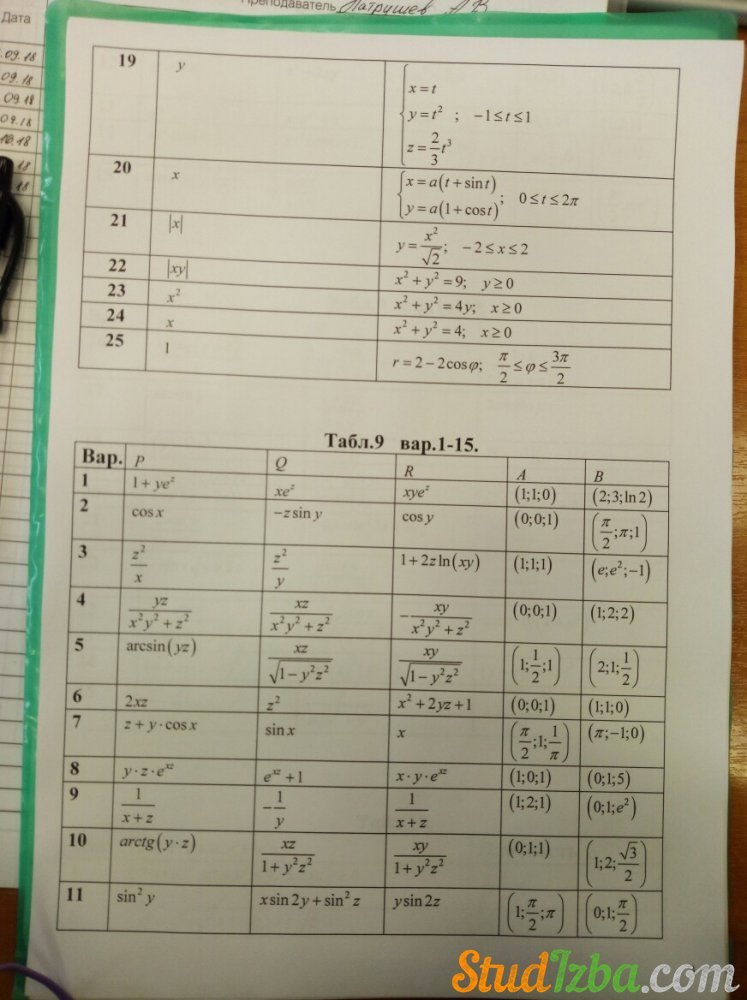 Преподаватель Патрушев А В
Дата
.09.18
09.18
09.18
09.18
10.18
18
18
19 y { x = t
y = t² ; −1 ≤ t ≤ 1
z = 2/3 t³
20 x { x = a(t + sin t)
y = a(1 + cos t) ; 0 ≤ t ≤ 2π
21 |x| y = x²/√2; −2 ≤ x ≤ 2
22 |xy| x² + y² = 9; y ≥ 0
23 x² x² + y² = 4y; x ≥ 0
24 x x² + y² = 4; x ≥ 0
25 1 r = 2 − 2cos φ; π/2 ≤ φ ≤ 3π/2
Табл.9 вар.1-15.
Вар. P Q R A B
1 1 + ye^z xe^z xye^z (1;1;0) (2;3;ln 2)
2 cos x −z sin y cos y (0;0;1) (π/2;π;1)
3 z²/x z²/y 1 + 2z ln(xy) (1;1;1) (e;e²;−1)
4 yz/(x²y² + z²) xz/(x²y² + z²) −xy/(x²y² + z²) (0;0;1) (1;2;2)
5 arcsin(yz) xz/√(1 − y²z²) xy/√(1 − y²z²) (1;1/2;1) (2;1;1/2)
6 2xz z² x² + 2yz + 1 (0;0;1) (1;1;0)
7 z + y · cos x sin x x (π/2;1;1/π) (π;−1;0)
8 y · z · e^xz e^xz + 1 x · y · e^xz (1;0;1) (0;1;5)
9 1/(x + z) −1/y 1/(x + z) (1;2;1) (0;1;e²)
10 arctg(y · z) xz/(1 + y²z²) xy/(1 + y²z²) (0;1;1) (1;2;√3/2)
11 sin² y x sin 2y + sin² z y sin 2z (1;π/2;π) (0;1;π/2)
StudIzba.com